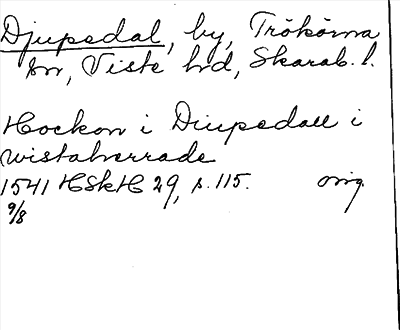 Djupedal, by, Trökörna
sn, Viste hd, Skarab. l.
Hockon i Diupedall i
wistaherrade
1541 HSkH 29, s. 115. orig.
9/8